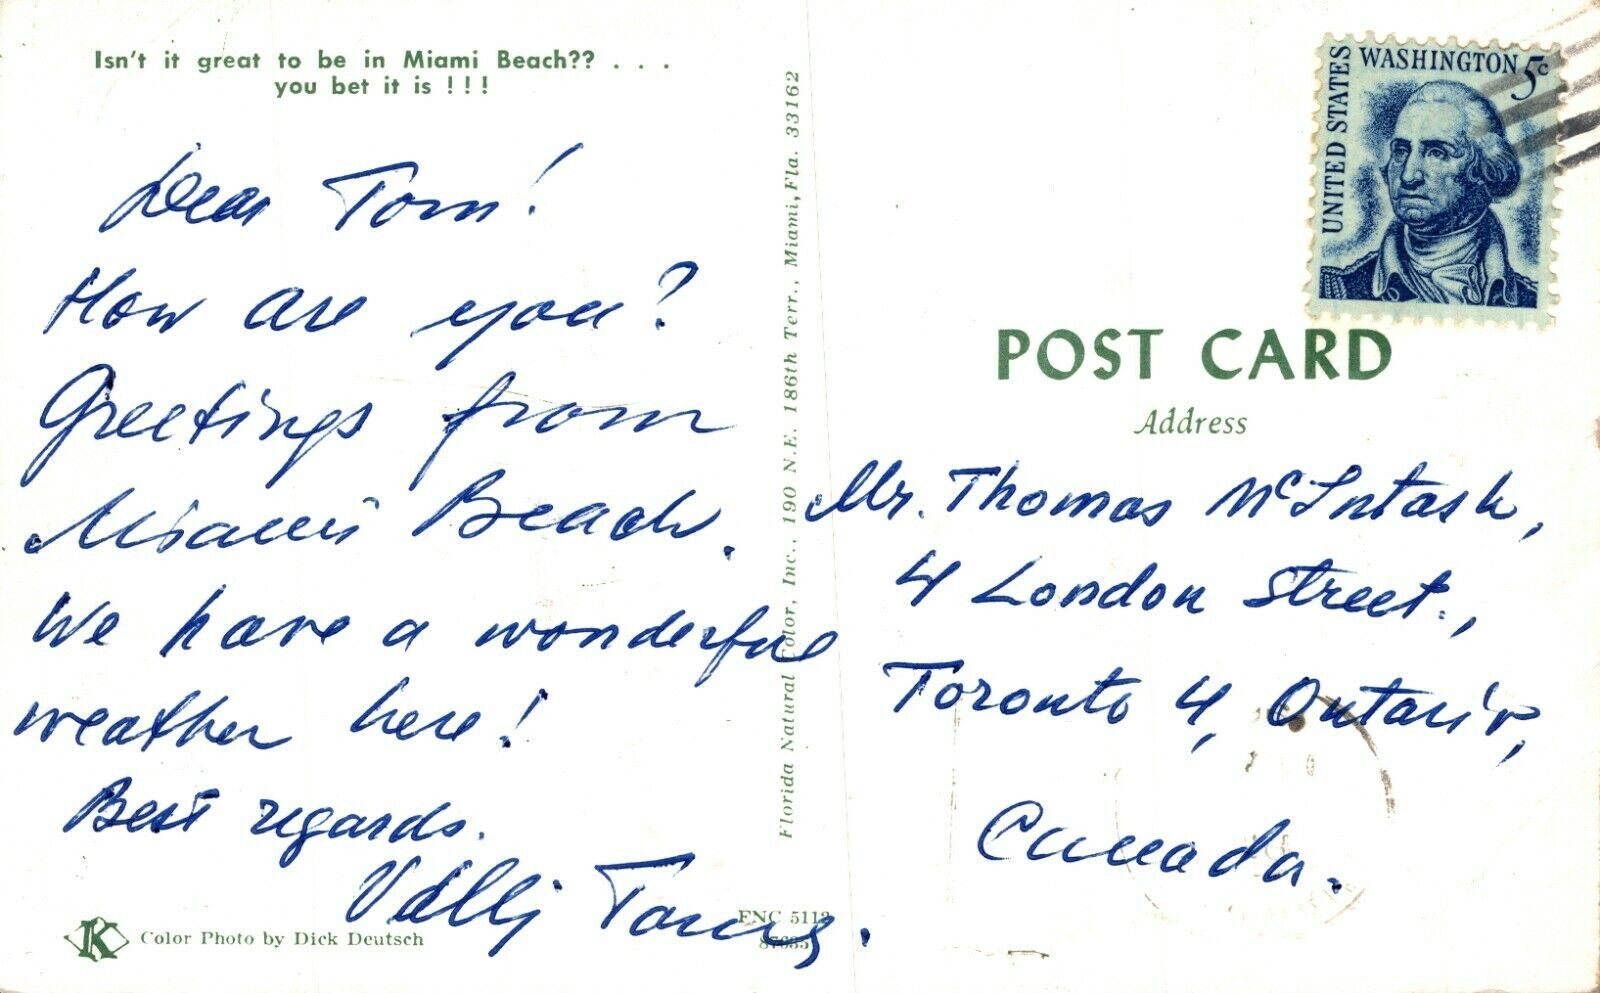 Isn't it great to be in Miami Beach?? . . .
you bet it is ! ! !
Dear Tom!
How are you?
Greetings from
Miami Beach.
We have a wonderful
weather here!
Best regards.
Color Photo by Dick Deutsch
K
Florida Natural Color, Inc., 190 N.E. 186th Terr., Miami, Fla. 33162
FNC 5112
UNITED STATES
WASHINGTON 5c
POST CARD
Address
Mr. Thomas McIntash,
4 London Street.,
Toronto 4, Ontario,
Canada.